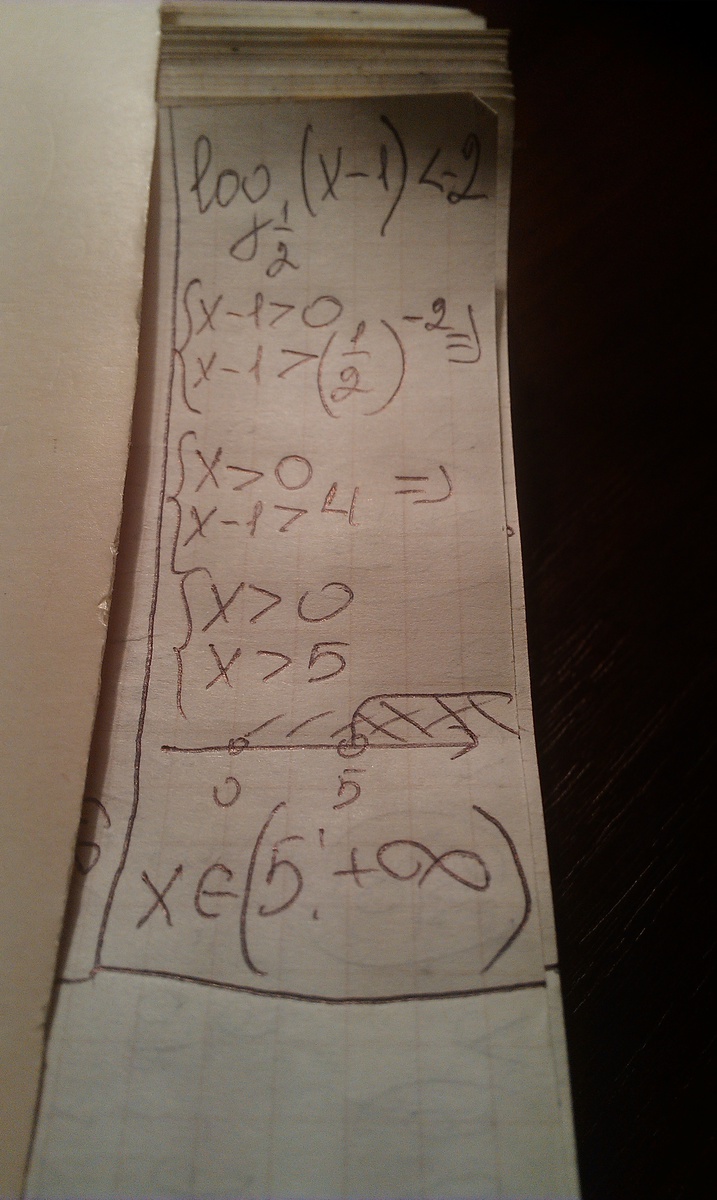 log 1/2 (x-1) < -2
{ x-1>0
{ x-1>(1/2)^-2 =>
{ x>0
{ x-1>4 =>
{ x>0
{ x>5
0 5
x∈(5;+∞)